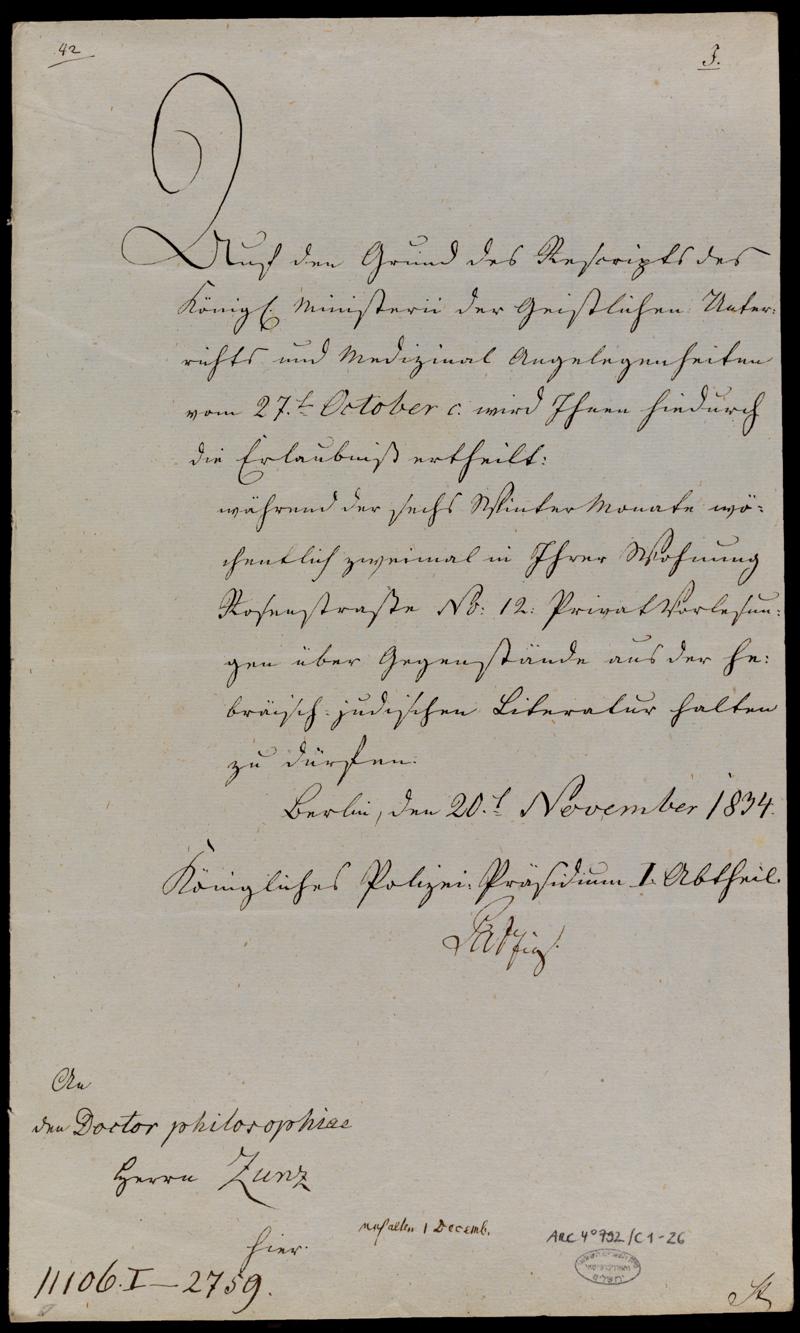 42
I.
Auf den Grund des Rescripts des
Königl. Ministerii der Geistlichen Unter:
richts und Medizinal Angelegenheiten
vom 27.t October c. wird Ihnen hiedurch
die Erlaubniß ertheilt:
während der sechs Winter Monate wö:
chentlich zweimal in Ihrer Wohnung
Rosenstraße No: 12: Privat Vorlesun:
gen über Gegenstände aus der he:
bräisch-judischen Literatur halten
zu dürfen.
Berlin, den 20.t November 1834.
Königliches Polizei-Präsidium I. Abtheil.
An
den Doctor philosophiae
Herrn Zunz
hier.
erhalten 1 Decemb.
ARC 4° 792/C1-26
11106.I—2759.